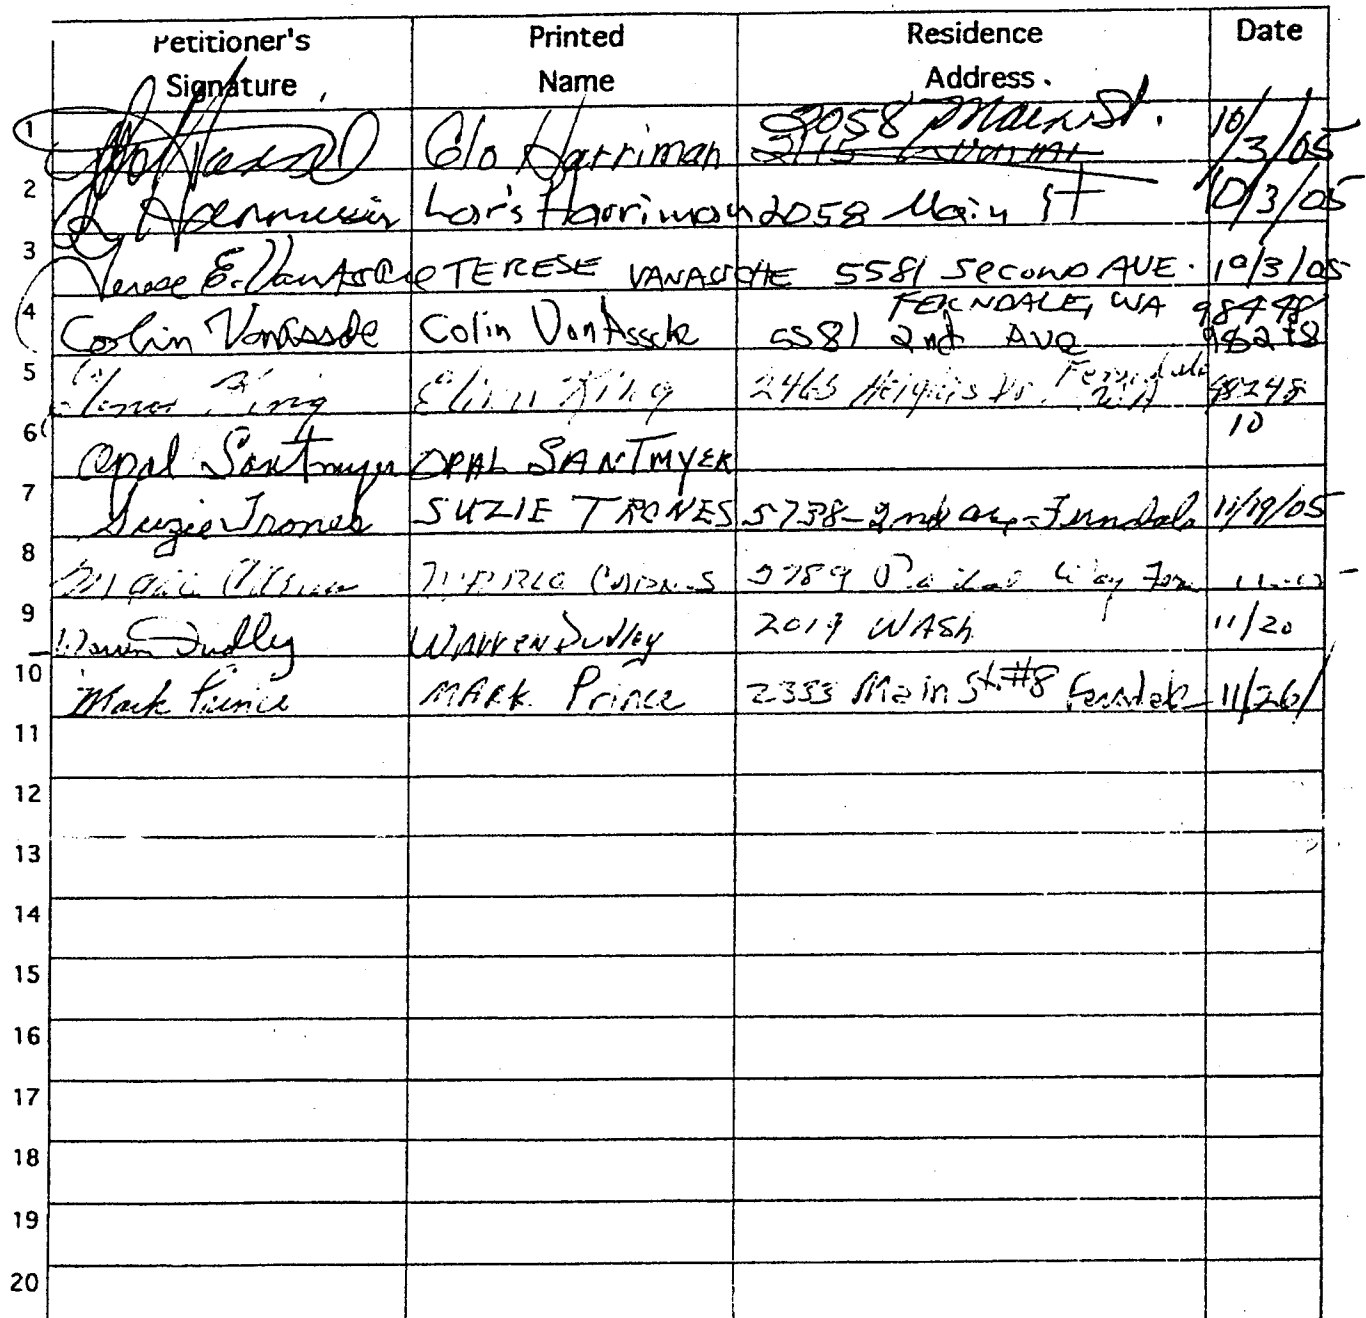 Petitioner's Signature Printed Name Residence Address. Date
1 Glo Harriman 2058 Main St. 10/3/05
2 L Harriman Loris Harriman 2058 Main St 10/3/05
3 Terese E. VanAssche TERESE VANASSCHE 5581 Second AVE. 10/3/05
FERNDALE, WA 98448
4 Collin VanAssche Colin VanAssche 5581 2nd Ave 98248
5 King King 2465 Heights Dr. Ferndale WA 98248
6 Opal Santmyer OPAL SANTMYER 10
7 Suzie Trones SUZIE TRONES 5738-2nd ave-Ferndale 11/19/05
8 5789 Way Fern
9 Warren Dudley WARREN DUDLEY 2019 WASH 11/20
10 Mark Prince MARK Prince 2333 Main St. #8 Ferndale 11/26/
11
12
13
14
15
16
17
18
19
20